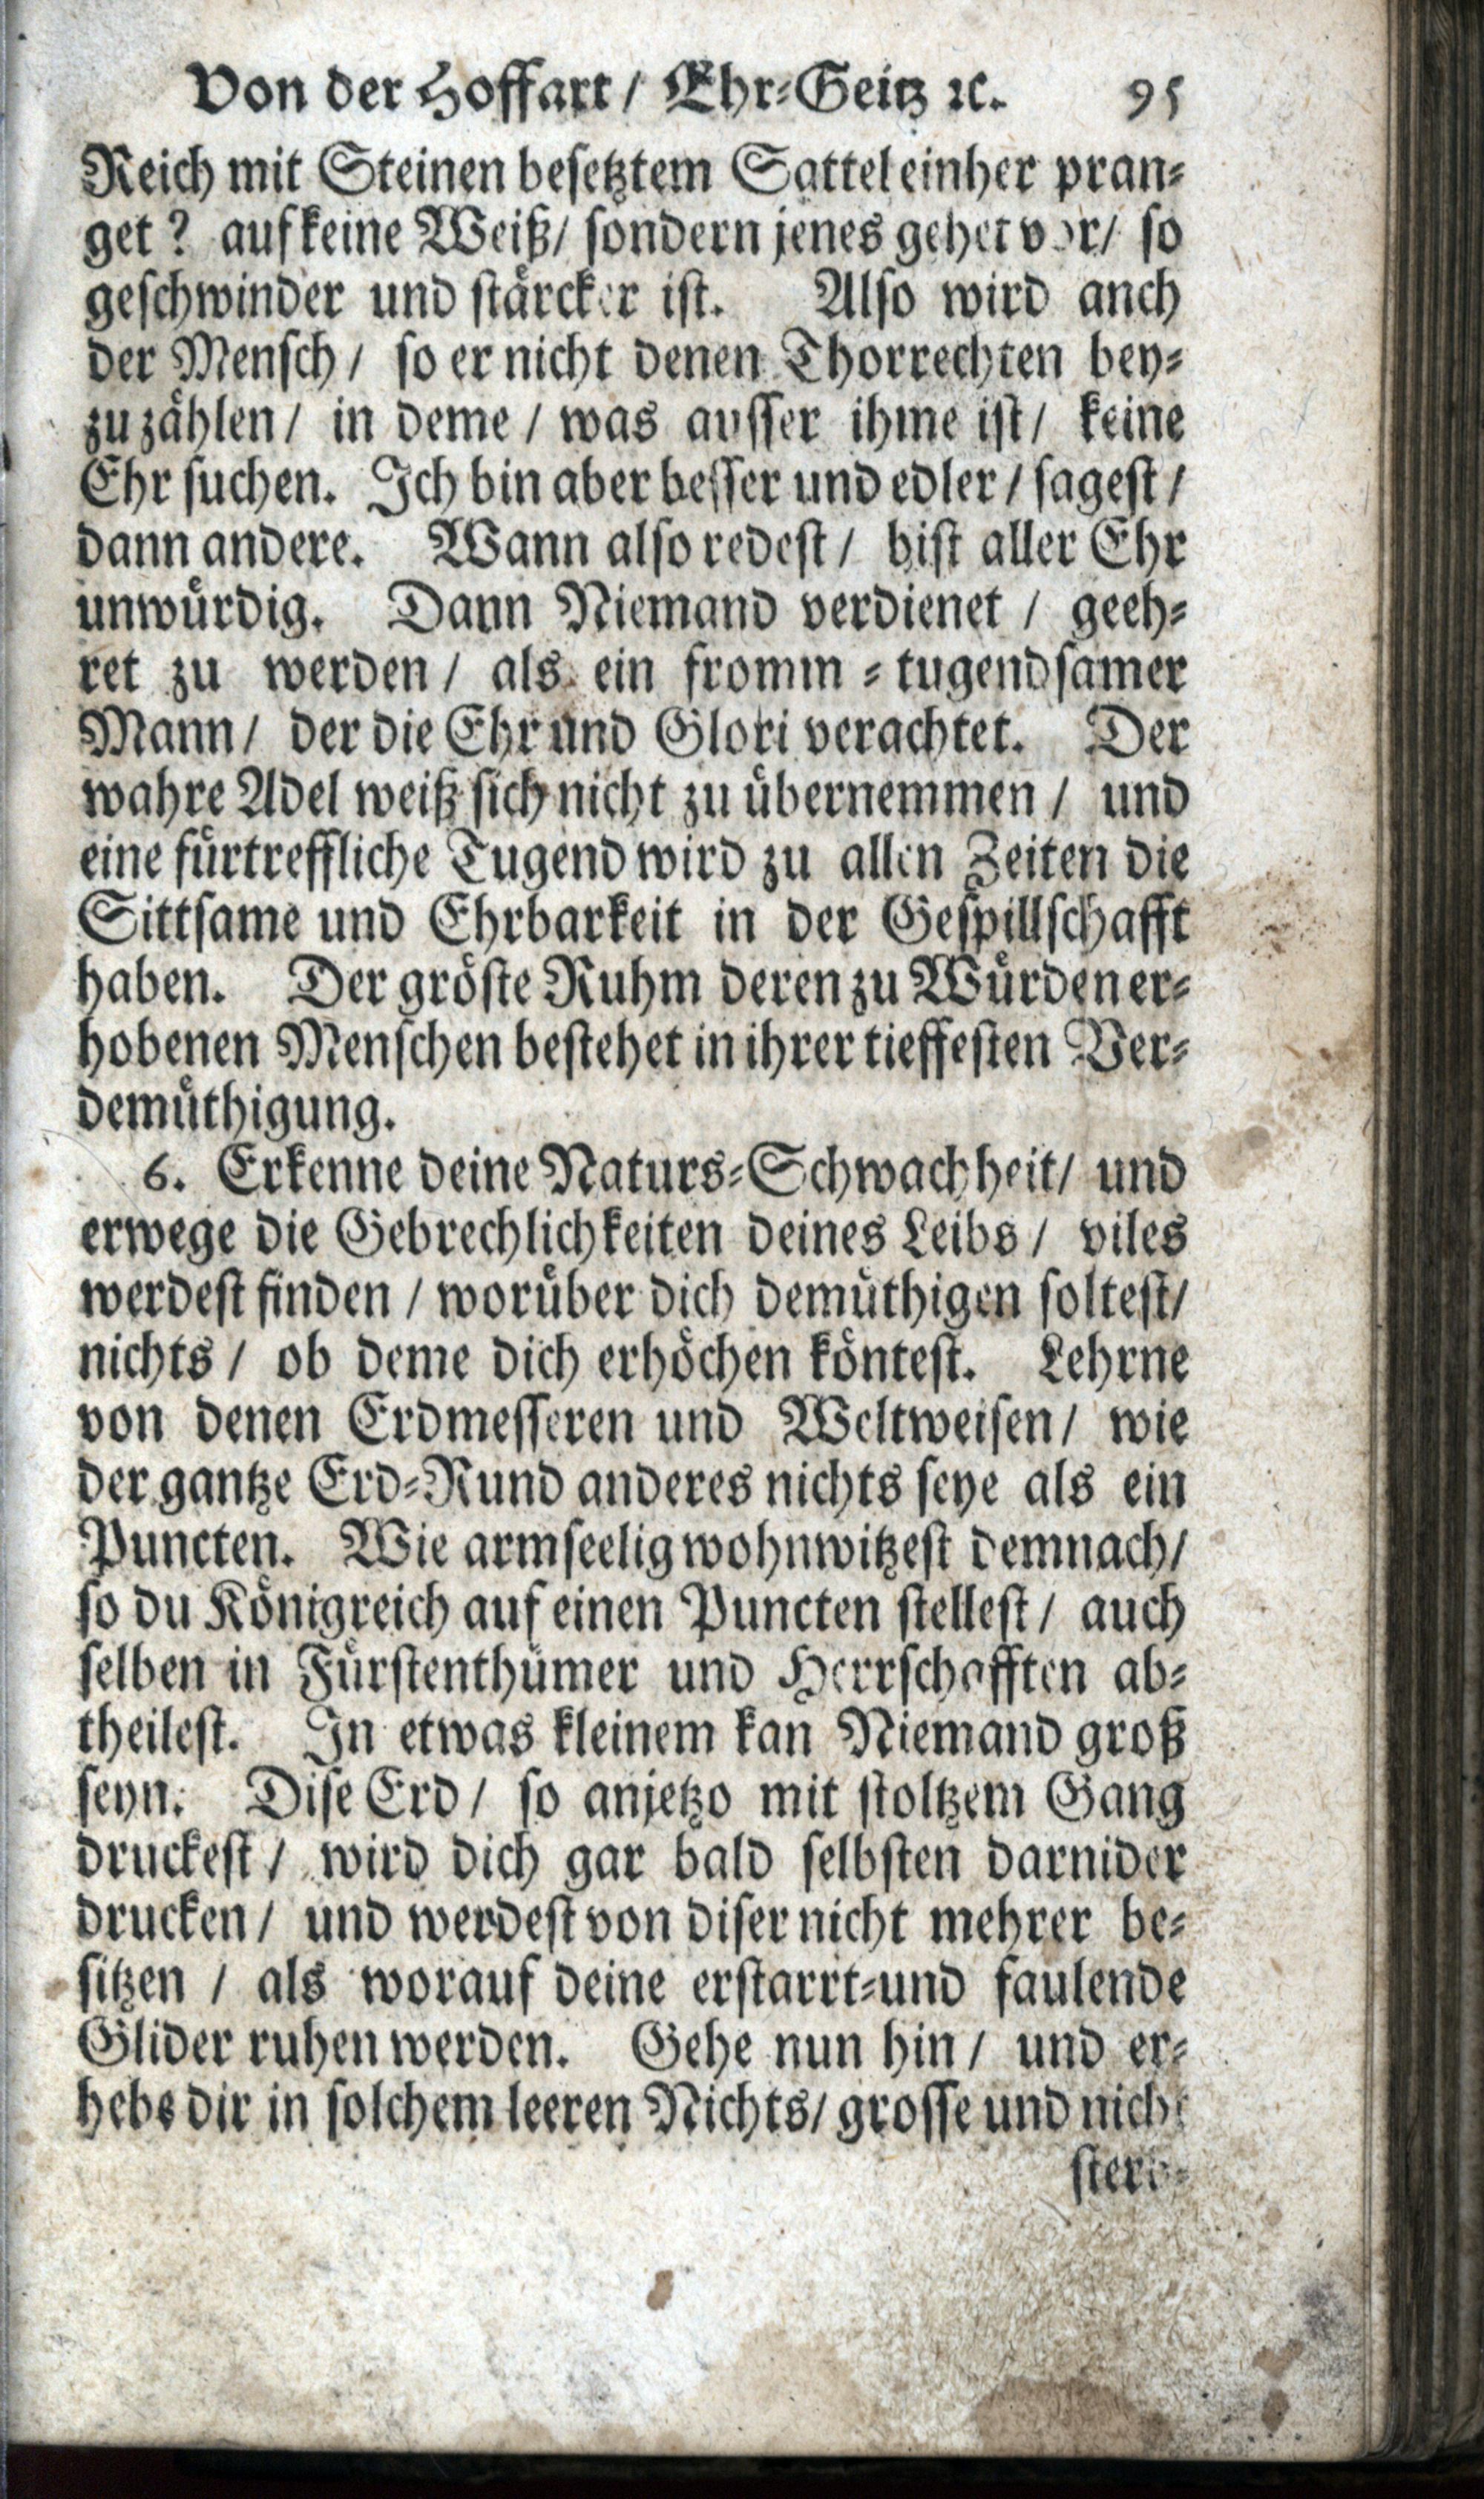 Von der Hoffart / Ehr-Geitz ꝛc. 95
Reich mit Steinen besetztem Sattel einher pran-
get? auf keine Weiß / sondern jenes gehet vor / so
geschwinder und stärcker ist. Also wird anch
der Mensch / so er nicht denen Thorrechten bey-
zu zählen / in deme / was ausser ihme ist / keine
Ehr suchen. Ich bin aber besser und edler / sagest /
dann andere. Wann also redest / bist aller Ehr
unwürdig. Dann Niemand verdienet / geeh-
ret zu werden / als ein fromm - tugendsamer
Mann / der die Ehr und Glori verachtet. Der
wahre Adel weiß sich nicht zu übernemmen / und
eine fürtreffliche Tugend wird zu allen Zeiten die
Sittsame und Ehrbarkeit in der Gespillschafft
haben. Der gröste Ruhm deren zu Würden er-
hobenen Menschen bestehet in ihrer tieffesten Ver-
demüthigung.
6. Erkenne deine Naturs-Schwachheit / und
erwege die Gebrechlichkeiten deines Leibs / viles
werdest finden / worüber dich demüthigen soltest /
nichts / ob deme dich erhöchen köntest. Lehrne
von denen Erdmesseren und Weltweisen / wie
der gantze Erd-Rund anderes nichts seye als ein
Puncten. Wie armseelig wohnwitzest demnach /
so du Königreich auf einen Puncten stellest / auch
selben in Fürstenthümer und Herrschafften ab-
theilest. In etwas kleinem kan Niemand groß
seyn. Dise Erd / so anjetzo mit stoltzem Gang
druckest / wird dich gar bald selbsten darnider
drucken / und werdest von diser nicht mehrer be-
sitzen / als worauf deine erstarrt-und faulende
Glider ruhen werden. Gehe nun hin / und er-
hebe dir in solchem leeren Nichts / grosse und nicht
sterb-